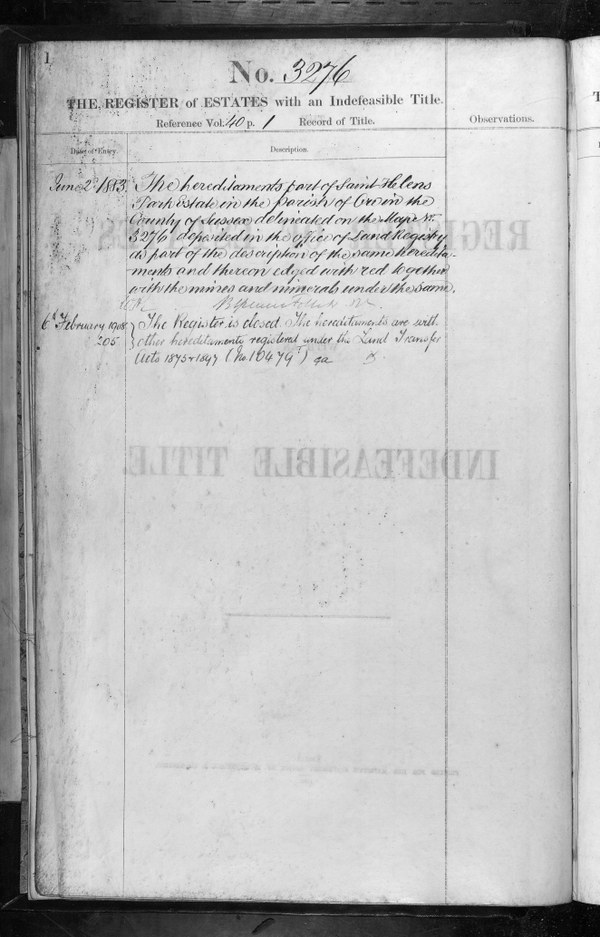 1
No. 3276
THE REGISTER of ESTATES with an Indefeasible Title.
Reference Vol. 40 p. 1 Record of Title.
Observations.
Date of Entry.
Description.
June 2d 1883. The hereditaments part of Saint Helens
Park Estate in the parish of Ore in the
County of Sussex delineated on the Map No.
3276 deposited in the office of Land Registry
as part of the description of the same heredita-
ments and thereon edged with red together
with the mines and minerals under the same.
6th February 1908 The Register is closed. The hereditaments are with
205 other hereditaments registered under the Land Transfer
Acts 1875 & 1897 (No. 10479)
REGISTER
ES
INDEFEASIBLE TITLE